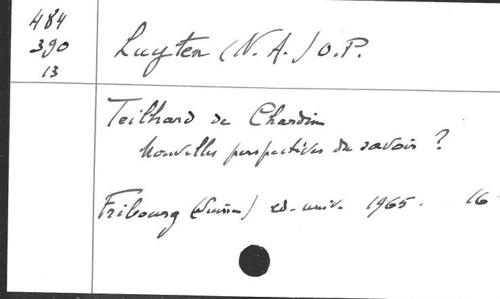 484
390
13
Luyten (N. A.) O.P.
Teilhard de Chardin
Nouvelles perspectives du savoir ?
Fribourg (Suisse) ed. univ. 1965. 16